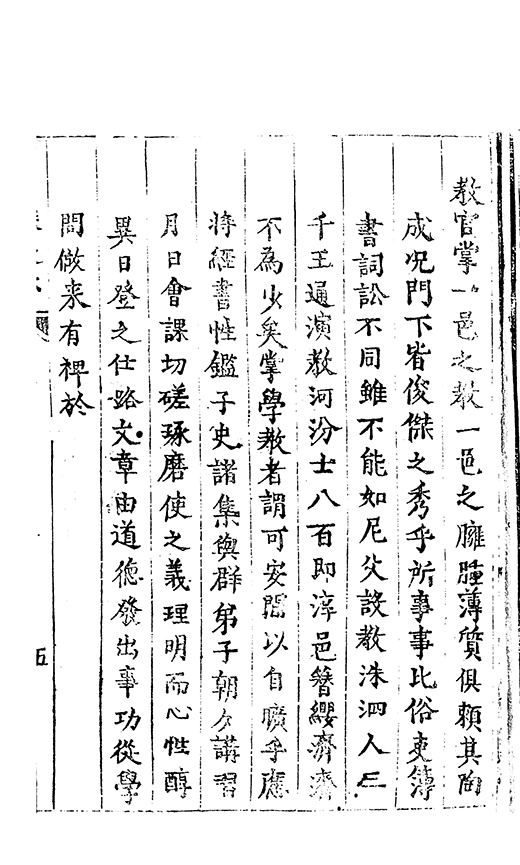 教官掌一邑之教一邑之臃腫薄質俱賴其陶
成况門下皆俊傑之秀乎所事事比俗吏簿
書詞訟不同雖不能如尼父設教洙泗人三
千王通演教河汾士八百即淳邑簪纓濟濟
不為少矣掌學教者謂可安閒以自曠乎應
將經書性鑑子史諸集與群弟子朝夕講習
月日會課切磋琢磨使之義理明而心性醇
異日登之仕路文章由道德發出事功從學
問做来有裨於
五